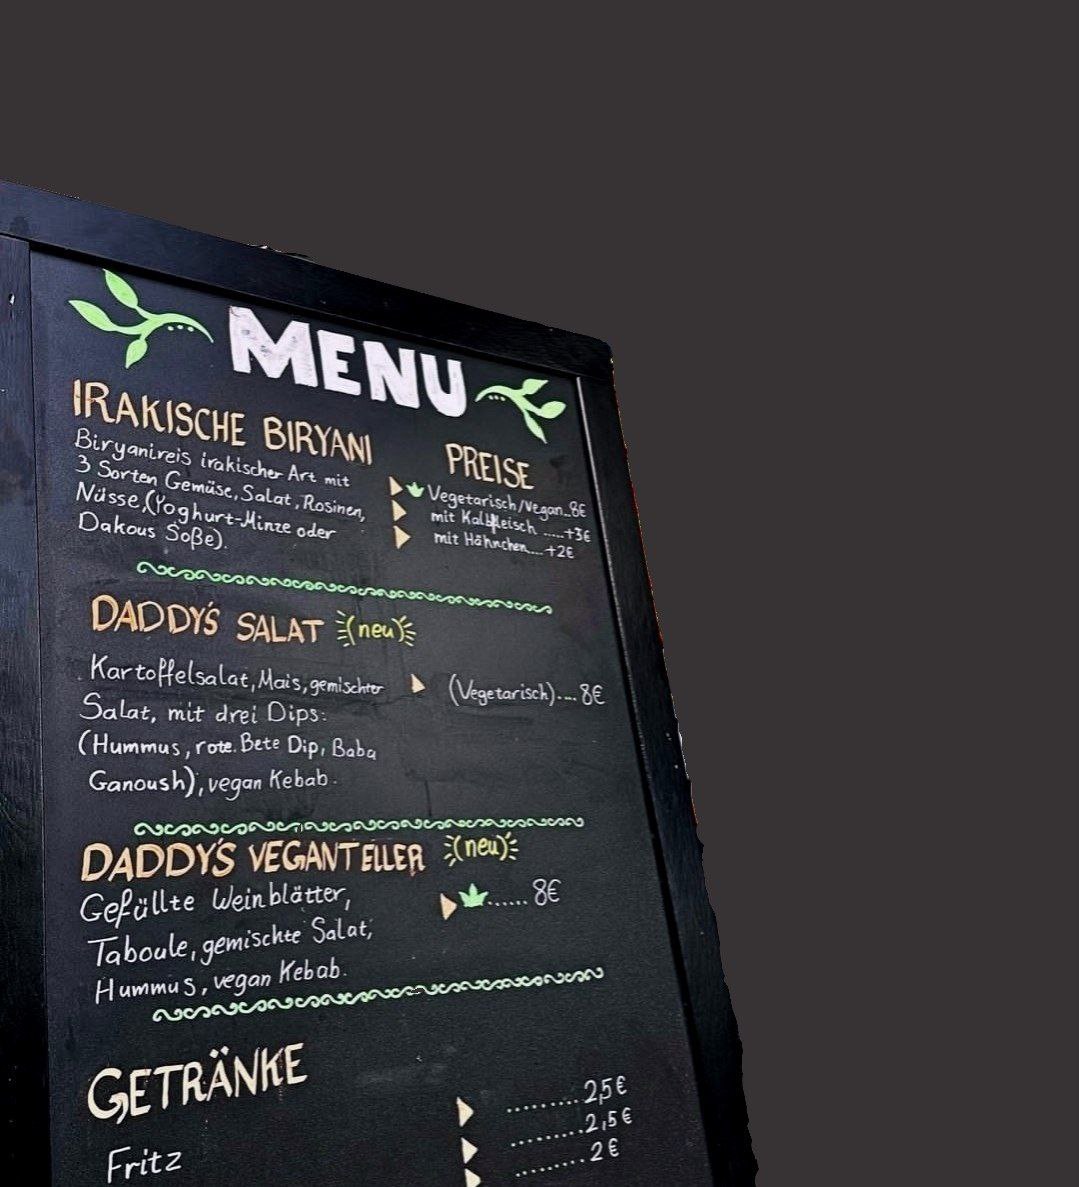 MENU
IRAKISCHE BIRYANI
Biryanireis irakischer Art mit
3 Sorten Gemüse, Salat, Rosinen,
Nüsse,(Yoghurt-Minze oder
Dakous Soße).
PREISE
Vegetarisch/Vegan..8€
mit Kalbfleisch .....+3€
mit Hähnchen....+2€
DADDY'S SALAT (neu)
Kartoffelsalat, Mais, gemischter
Salat, mit drei Dips:
(Hummus, rote Bete Dip, Baba
Ganoush), vegan Kebab.
(Vegetarisch)....8€
DADDY'S VEGANTELLER (neu)
Gefüllte Weinblätter,
Taboule, gemischte Salat,
Hummus, vegan Kebab.
...... 8€
GETRÄNKE
Fritz
.........2,5€
.........2,5€
.........2€